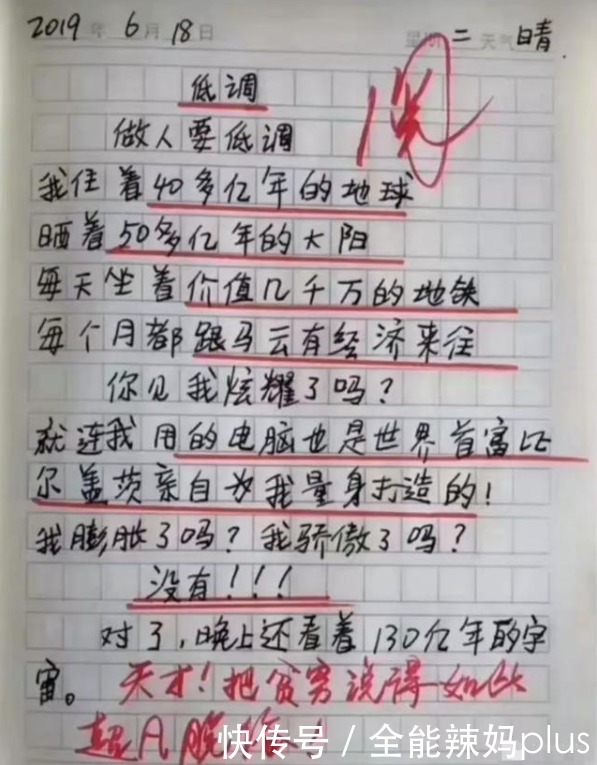 2019年6月18日 星期二 天气晴
低调
做人要低调
我住着40多亿年的地球
晒着50多亿年的太阳
每天坐着价值几千万的地铁
每个月都跟马云有经济来往
你见我炫耀了吗？
就连我用的电脑也是世界首富比
尔盖茨亲自为我量身打造的！
我膨胀了吗？我骄傲了吗？
没有！！！
对了，晚上还看着130亿年的宇
宙。天才！把贫穷说得如此
超凡脱俗！
快传号 / 全能辣妈plus